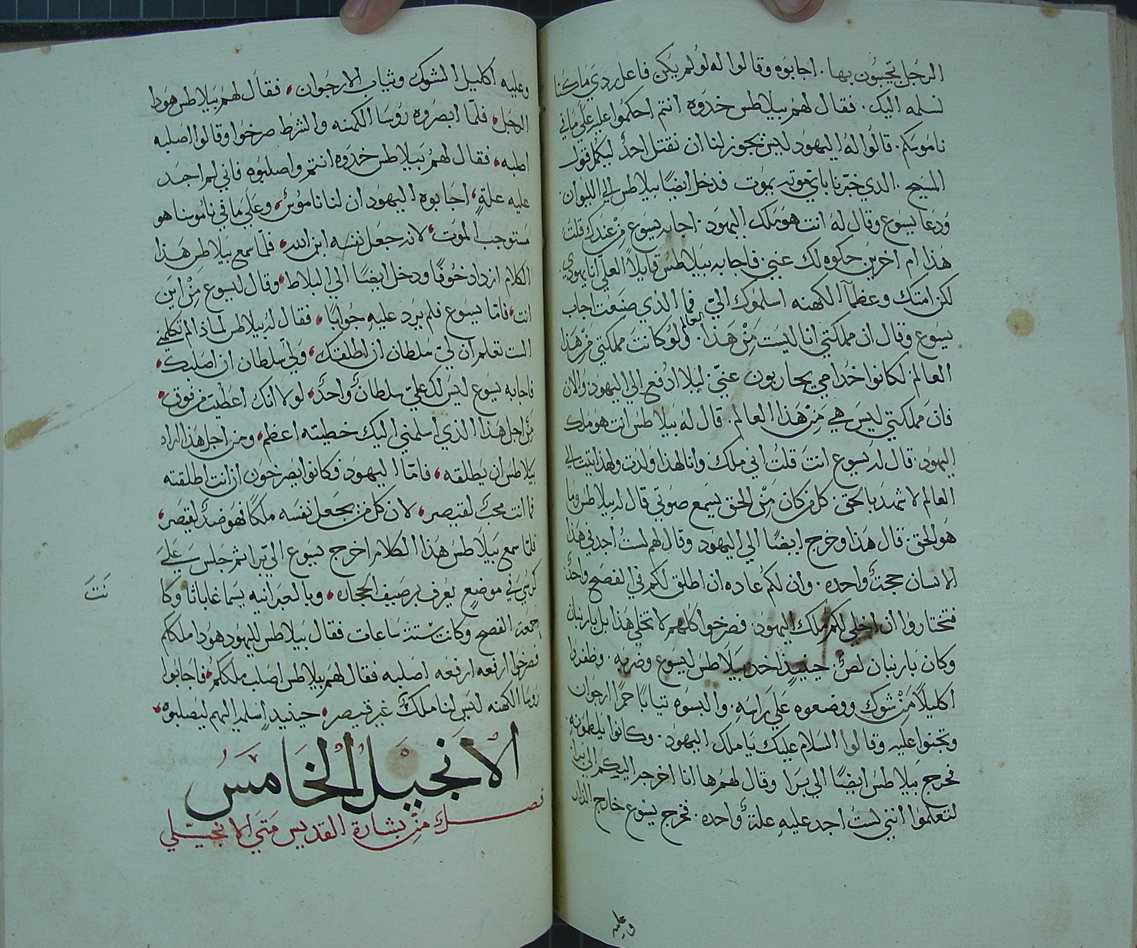 الرجل تجيبون بها. اجابوه وقالوا له لو لم يكن فاعل ردي ما كنا
نسلمه اليك. فقال لهم بيلاطس خدوه انتم احكموا عليه على ما في
ناموسكم. قالوا له اليهود ليس يجوز لنا ان نقتل احدٌ ليكمل قول
المسيح. الذي خبّرنا باي موته يموت فدخل ايضًا بيلاطس الى الايوان
ودعا ليسوع وقال له انت هو ملك اليهود. اجابه يسوع من عندك قلت
هذا ام اخرين حكوه لك عني. فاجابه بيلاطس قايلًا العلي انا يهودي
لكن امتك وعظمآ الكهنه اسلموك اليّ فما الذي صنعت اجاب
يسوع وقال ان مملكتي انا ليست مِن هَذا العالم ولو كانت مملكتي من هذا
العالم لكانوا خدامي يحاربون عنّي ليلا ادفع الى اليهود والان
فان مملكتي ليس هي مِن هذا العالم. قال له بيلاطس انت هو ملك
اليهود. قال له يسوع انتَ قلتَ اني ملك وانا لهذا ولدت ولهذا اتيت الى
العالم لاشهد بالحق كل من كان مِن الحق يسمع صوتي قال له بيلاطس وما
هو الحق. قال هذا وخرج ايضًا الى اليهود وقال لهم لست اجد في هذا
الانسان حجتةٌ واحده. وان لكم عاده ان اطلق لكم في الفصح واحد
فتختاروا ان اخلي لكم ملك اليهود. فصرخوا كلهم لا تخلي هذا بل باربنان
وكان باربنان لصٌ. حينيذٍ احد بيلاطس ليسوع وضربه. وظفروا
اكليلًا مَن شوك ووضعوه على راسه. والبسوه تيابًا حمرًا ارجوان
ويجتوا عليه وقالوا السلام عليك يا ملك اليهود. وكانوا يلطمونه
فخرج بيلاطس ايضًا الى برا وقال لهم ها انا اخرجه اليكم الى برا
لتعلموا انني لست اجد عليه علتةٌ واحده. فخرج يسوع خارج الدار
وعليه
وعليه اكليل الشوك وثياب الارجوان. فقال لهم بيلاطس هودا
الرجل. فلما ابصروه روسا الكهنه والشرط صرخوا وقالوا اصلبه
اصلبه. فقال لهم بيلاطس خدوه انتم واصلبوه فاني لم اجد
عليه علةٍ. اجابوه اليهود ان لنا ناموسٌ. وعلى ما في ناموسنا هو
مستوجب الموت. لانه جعل نفسه ابن الله. فلما سمع بيلاطس هذا
الكلام ازداد خوفًا ودخل ايضًا الى البلاط. وقال ليسوع من اين
انت. فامّا يسوع فلم يرد عليه جوابًا. فقال له بيلاطس لماذا لم تكلمني
الست تعلم ان لي سلطان ان اطلقك. ولي سلطان ان اصلبك.
فاجابه يسوع ليس لك عليّ سلطانٌ واحدٌ. لولا انك اعطيت من فوق.
مِن اجل هذا الذي اسلمني اليك خطيته اعظم. ومن اجل هذا اراد
بيلاطس ان يطلقه. فامّا اليهود فكانوا يصرخون ان انت اطلقته
فما انت محبٌ لقيصر. لان كل من يجعل نفسه ملكًا فهو ضدٌ لقيصر.
فلما سمع بيلاطس هذا الكلام اخرج يسوع الى برّا ثم جلس عَلى
كرسي في موضع يعرف برصيف الحجاره. وبالعبرانيه يسما غاباثا وكا
نَتَ
جمعة الفصح وكانت ستة ساعات فقال بيلاطس لليهود هودا ملككم
فصرخوا ارفعه ارفعه اصلبه فقال لهم بيلاطس اصلب ملككم. فاجابوا
روسا الكهنه ليس لنا ملكٌ غير قيصر. حينيذٍ اسلمه اليهم ليصلبوه.
الانجيل الخامسُ
فصل من بشارة القديس متي الانجيلي